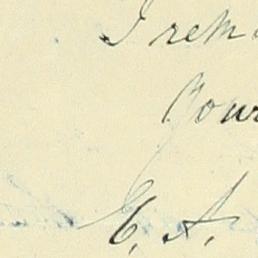 I rem
Your
E. A.